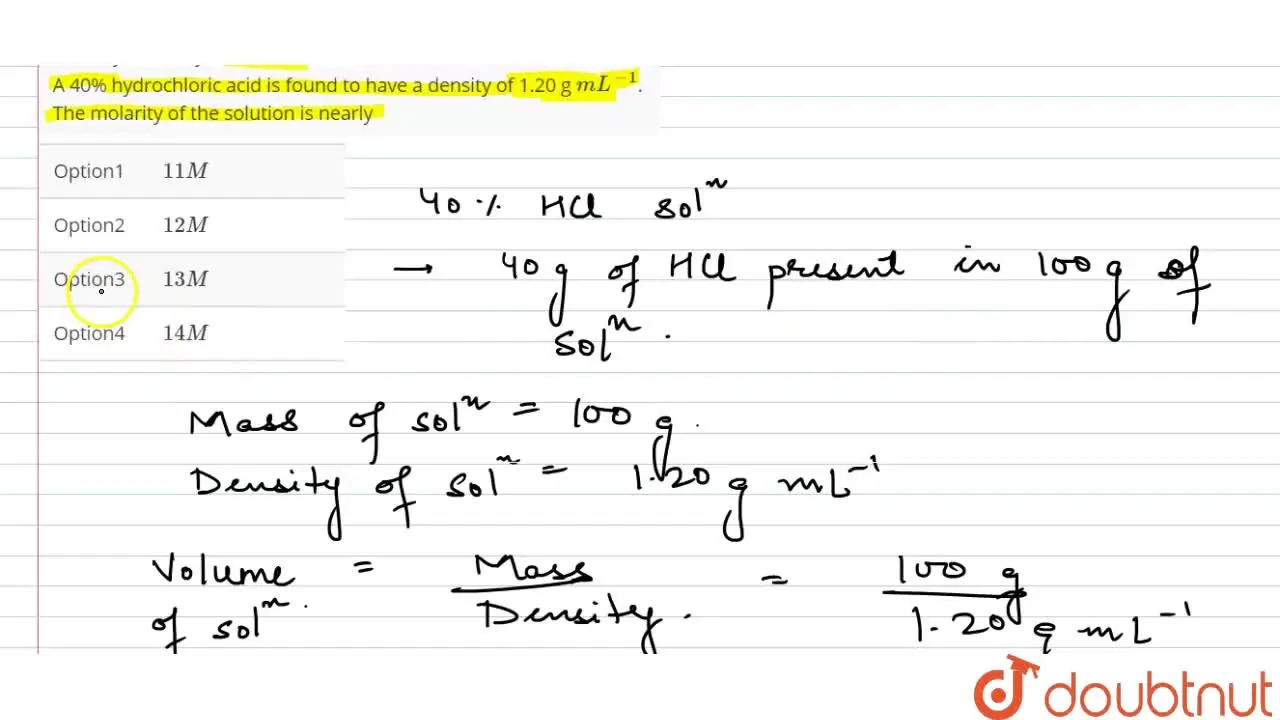 A 40% hydrochloric acid is found to have a density of 1.20 g mL⁻¹.
The molarity of the solution is nearly
Option1 11M
Option2 12M
Option3 13M
Option4 14M
40 % HCl solⁿ
→ 40 g of HCl present in 100 g of
solⁿ.
Mass of solⁿ = 100 g.
Density of solⁿ = 1.20 g mL⁻¹
Volume of solⁿ. = Mass / Density. = 100 g / 1.20 g mL⁻¹
doubtnut